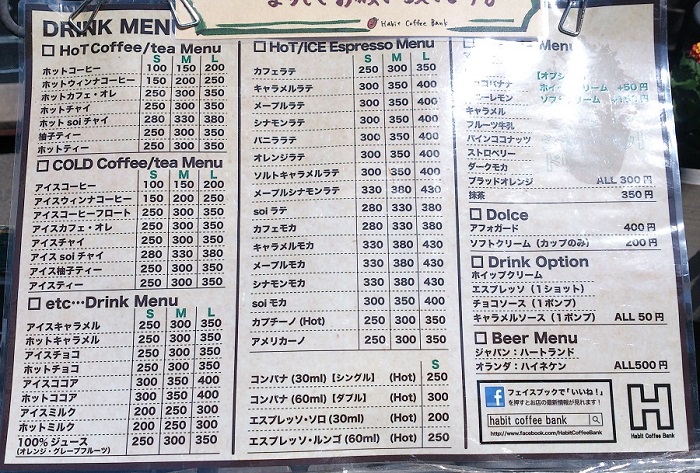 Habit Coffee Bank
DRINK MENU
□ HoT Coffee/tea Menu
S M L
ホットコーヒー 100 150 200
ホットウィンナコーヒー 150 200 250
ホットカフェ・オレ 250 300 350
ホットチャイ 250 300 350
ホット soi チャイ 280 330 380
柚子ティー 250 300 350
ホットティー 250 300 350
□ COLD Coffee/tea Menu
S M L
アイスコーヒー 100 150 200
アイスウィンナコーヒー 150 200 250
アイスコーヒーフロート 250 300 350
アイスカフェ・オレ 250 300 350
アイスチャイ 250 300 350
アイス soi チャイ 280 330 380
アイス柚子ティー 250 300 350
アイスティー 250 300 350
□ etc…Drink Menu
S M L
アイスキャラメル 250 300 350
ホットキャラメル 250 300 350
アイスチョコ 250 300 350
ホットチョコ 250 300 350
アイスココア 300 350 400
ホットココア 300 350 400
アイスミルク 200 250 300
ホットミルク 200 250 300
100% ジュース 250 300 350
(オレンジ・グレープフルーツ)
□ HoT/ICE Espresso Menu
S M L
カフェラテ 250 300 350
キャラメルラテ 300 350 400
メープルラテ 300 350 400
シナモンラテ 300 350 400
バニララテ 300 350 400
オレンジラテ 300 350 400
ソルトキャラメルラテ 300 350 400
メープルシナモンラテ 330 380 430
soi ラテ 280 330 380
カフェモカ 280 330 380
キャラメルモカ 330 380 430
メープルモカ 330 380 430
シナモンモカ 330 380 430
soi モカ 300 350 400
カプチーノ (Hot) 250 300 350
アメリカーノ 250 300 350
S
コンパナ (30ml)【シングル】 (Hot) 250
コンパナ (60ml)【ダブル】 (Hot) 300
エスプレッソ・ソロ (30ml) (Hot) 200
エスプレッソ・ルンゴ (60ml) (Hot) 250
Menu
ホイップクリーム +50円
キャラメル
フルーツ牛乳
パインココナッツ
ストロベリー
ダークモカ
ブラッドオレンジ ALL 300 円
抹茶 350 円
□ Dolce
アフォガード 400 円
ソフトクリーム (カップのみ) 200 円
□ Drink Option
ホイップクリーム
エスプレッソ (1ショット)
チョコソース (1ポンプ)
キャラメルソース (1ポンプ) ALL 50 円
□ Beer Menu
ジャパン:ハートランド
オランダ:ハイネケン ALL500 円
f フェイスブックで「いいね!」
を押すとお店の最新情報が見れます!
habit coffee bank
http://www.facebook.com/HabitCoffeeBank
H
Habit Coffee Bank